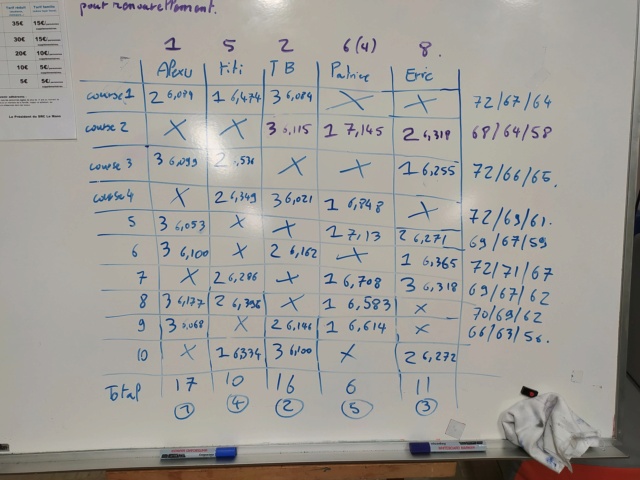 pour renouvellement.
35€ 15€/
30€ 15€/
20€ 10€/
10€ 5€/
5€ 5€/
1 5 2 6(4) 8
Alexu titi TB Patrice Eric
course 1 2 6,474 3 6,084 X X 72/67/64
course 2 X X 3 6,115 1 7,145 2 6,318 68/64/58
course 3 3 6,099 2 X X 1 6,255 72/66/65.
course 4 X 2 6,349 3 6,021 1 6,848 X 72/69/61.
5 3 6,053 X X 1 7,13 2 6,271 69/67/59
6 3 6,100 X 2 6,162 X 1 6,365 72/71/67
7 X 2 6,286 X 1 6,708 3 6,318 69/67/62
8 3 6,177 2 6,396 X 1 6,583 X 70/69/62
9 3 X 2 6,146 1 6,614 X 66/63/56.
10 X 1 6334 3 6,100 X 2 6,272
Total 17 10 16 6 11
1 4 2 5 3